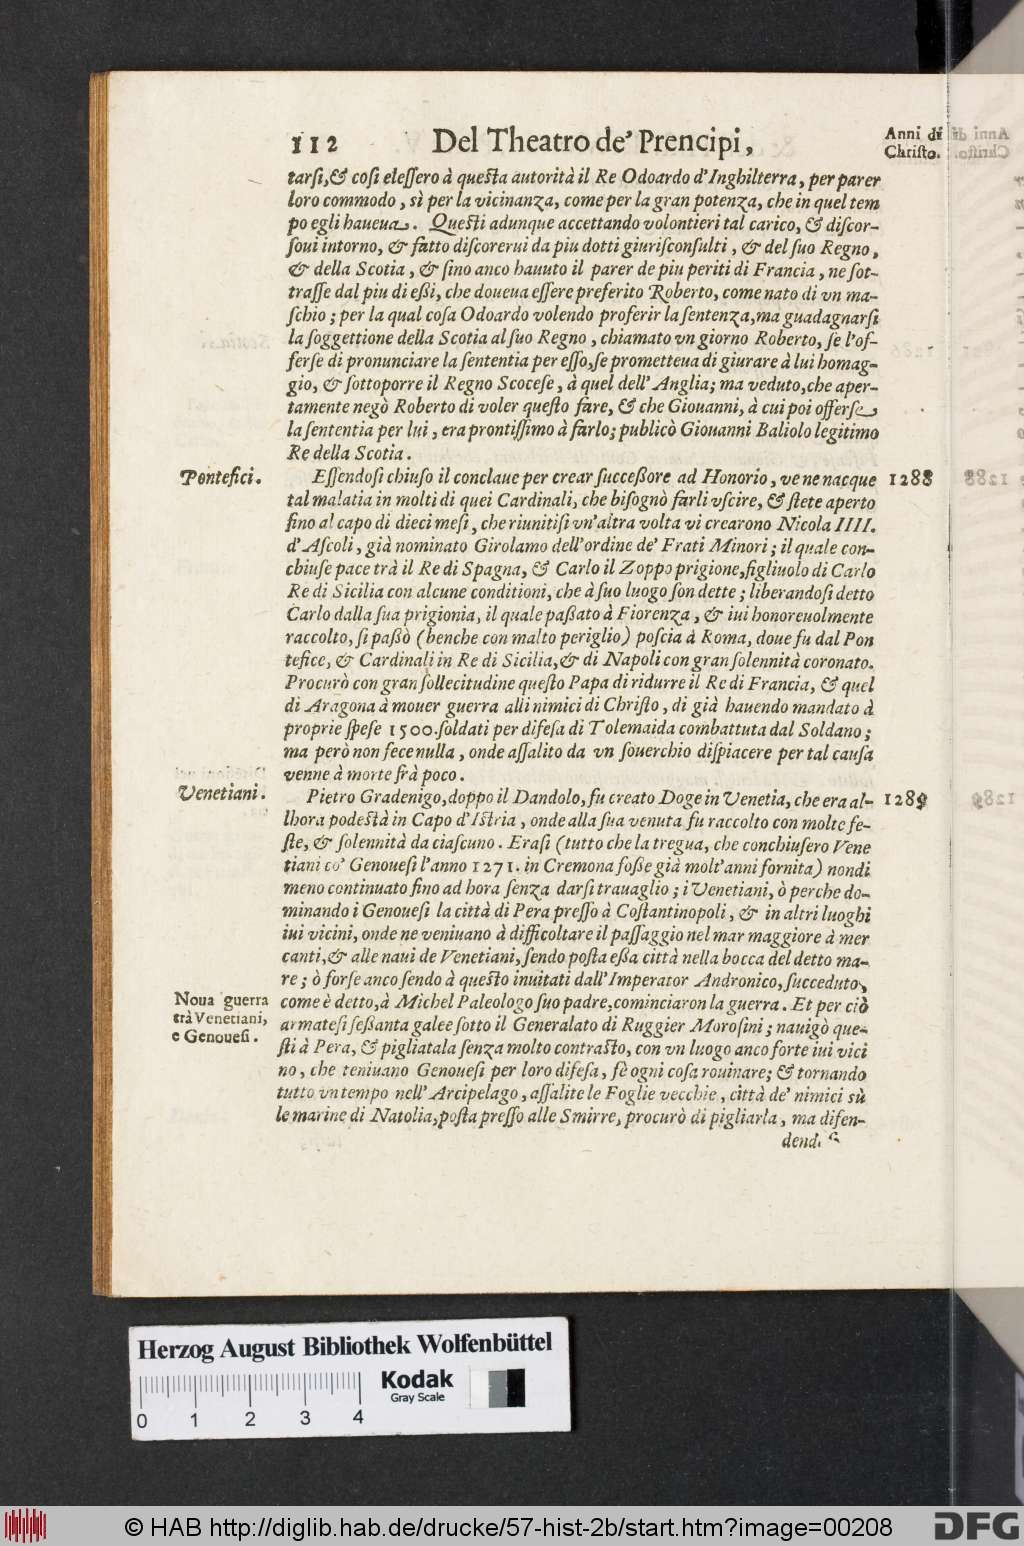 112 Del Theatro de' Prencipi,
Anni di
Christo.
tarsi,& cosi elessero à questa autorità il Re Odoardo d'Inghilterra, per parer
loro commodo, sì per la vicinanza, come per la gran potenza, che in quel tem
po egli haueua. Questi adunque accettando volontieri tal carico, & discor-
soui intorno, & fatto discorerui da piu dotti giurisconsulti, & del suo Regno,
& della Scotia, & sino anco hauuto il parer de piu periti di Francia, ne sot-
trasse dal piu di essi, che doueua essere preferito Roberto, come nato di vn ma-
schio; per la qual cosa Odoardo volendo proferir la sentenza,ma guadagnarsi
la soggettione della Scotia al suo Regno, chiamato vn giorno Roberto, se l'of-
ferse di pronunciare la sententia per esso,se prometteua di giurare à lui homag-
gio, & sottoporre il Regno Scocese, à quel dell'Anglia; ma veduto,che aper-
tamente negò Roberto di voler questo fare, & che Giouanni, à cui poi offerse
la sententia per lui, era prontissimo à farlo; publicò Giouanni Baliolo legitimo
Re della Scotia.
Pontefici.
Essendosi chiuso il conclaue per crear successore ad Honorio, ve ne nacque
1288
tal malatia in molti di quei Cardinali, che bisognò farli vscire, & stete aperto
sino al capo di dieci mesi, che riunitisi vn'altra volta vi crearono Nicola IIII.
d'Ascoli, già nominato Girolamo dell'ordine de' Frati Minori; il quale con-
chiuse pace trà il Re di Spagna, & Carlo il Zoppo prigione,figliuolo di Carlo
Re di Sicilia con alcune conditioni, che à suo luogo son dette; liberandosi detto
Carlo dalla sua prigionia, il quale passato à Fiorenza, & iui honoreuolmente
raccolto, si passò (benche con malto periglio) poscia à Roma, doue fu dal Pon
tefice, & Cardinali in Re di Sicilia,& di Napoli con gran solennità coronato.
Procurò con gran sollecitudine questo Papa di ridurre il Re di Francia, & quel
di Aragona à mouer guerra alli nimici di Christo, di già hauendo mandato à
proprie spese 1500.soldati per difesa di Tolemaida combattuta dal Soldano;
ma però non fece nulla, onde assalito da vn souerchio dispiacere per tal causa
venne à morte frà poco.
Venetiani.
Pietro Gradenigo,doppo il Dandolo, fu creato Doge in Venetia, che era al-
1289
lhora podestà in Capo d'Istria, onde alla sua venuta fu raccolto con molte fe-
ste, & solennità da ciascuno. Erasi (tutto che la tregua, che conchiusero Vene
tiani co' Genouesi l'anno 1271. in Cremona fosse già molt'anni fornita) nondi
meno continuato fino ad hora senza darsi trauaglio; i Venetiani, ò perche do-
minando i Genouesi la città di Pera presso à Costantinopoli, & in altri luoghi
iui vicini, onde ne veniuano à difficoltare il passaggio nel mar maggiore à mer
canti,& alle naui de Venetiani, sendo posta essa città nella bocca del detto ma-
re; ò forse anco sendo à questo inuitati dall'Imperator Andronico, succeduto,
Noua guerra
trà Venetiani,
e Genouesi.
come è detto,à Michel Paleologo suo padre,cominciaron la guerra. Et per ciò
armatesi sessanta galee sotto il Generalato di Ruggier Morosini; nauigò que-
sti à Pera, & pigliatala senza molto contrasto, con vn luogo anco forte iui vici
no, che teniuano Genouesi per loro difesa, fè ogni cosa rouinare; & tornando
tutto vn tempo nell'Arcipelago, assalite le Foglie vecchie, città de' nimici sù
le marine di Natolia,posta presso alle Smirre, procurò di pigliarla, ma difen-
Herzog August Bibliothek Wolfenbüttel
Kodak
Gray Scale
0 1 2 3 4
© HAB http://diglib.hab.de/drucke/57-hist-2b/start.htm?image=00208
DFG